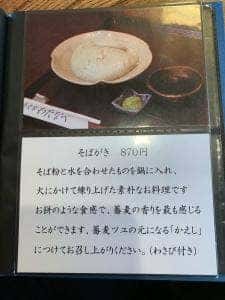 そばがき　870円
そば粉と水を合わせたものを鍋に入れ、
火にかけて練り上げた素朴なお料理です
お餅のような食感で、蕎麦の香りを最も感じる
ことができます、蕎麦ツユの元になる「かえし」
につけてお召し上がりください。(わさび付き)